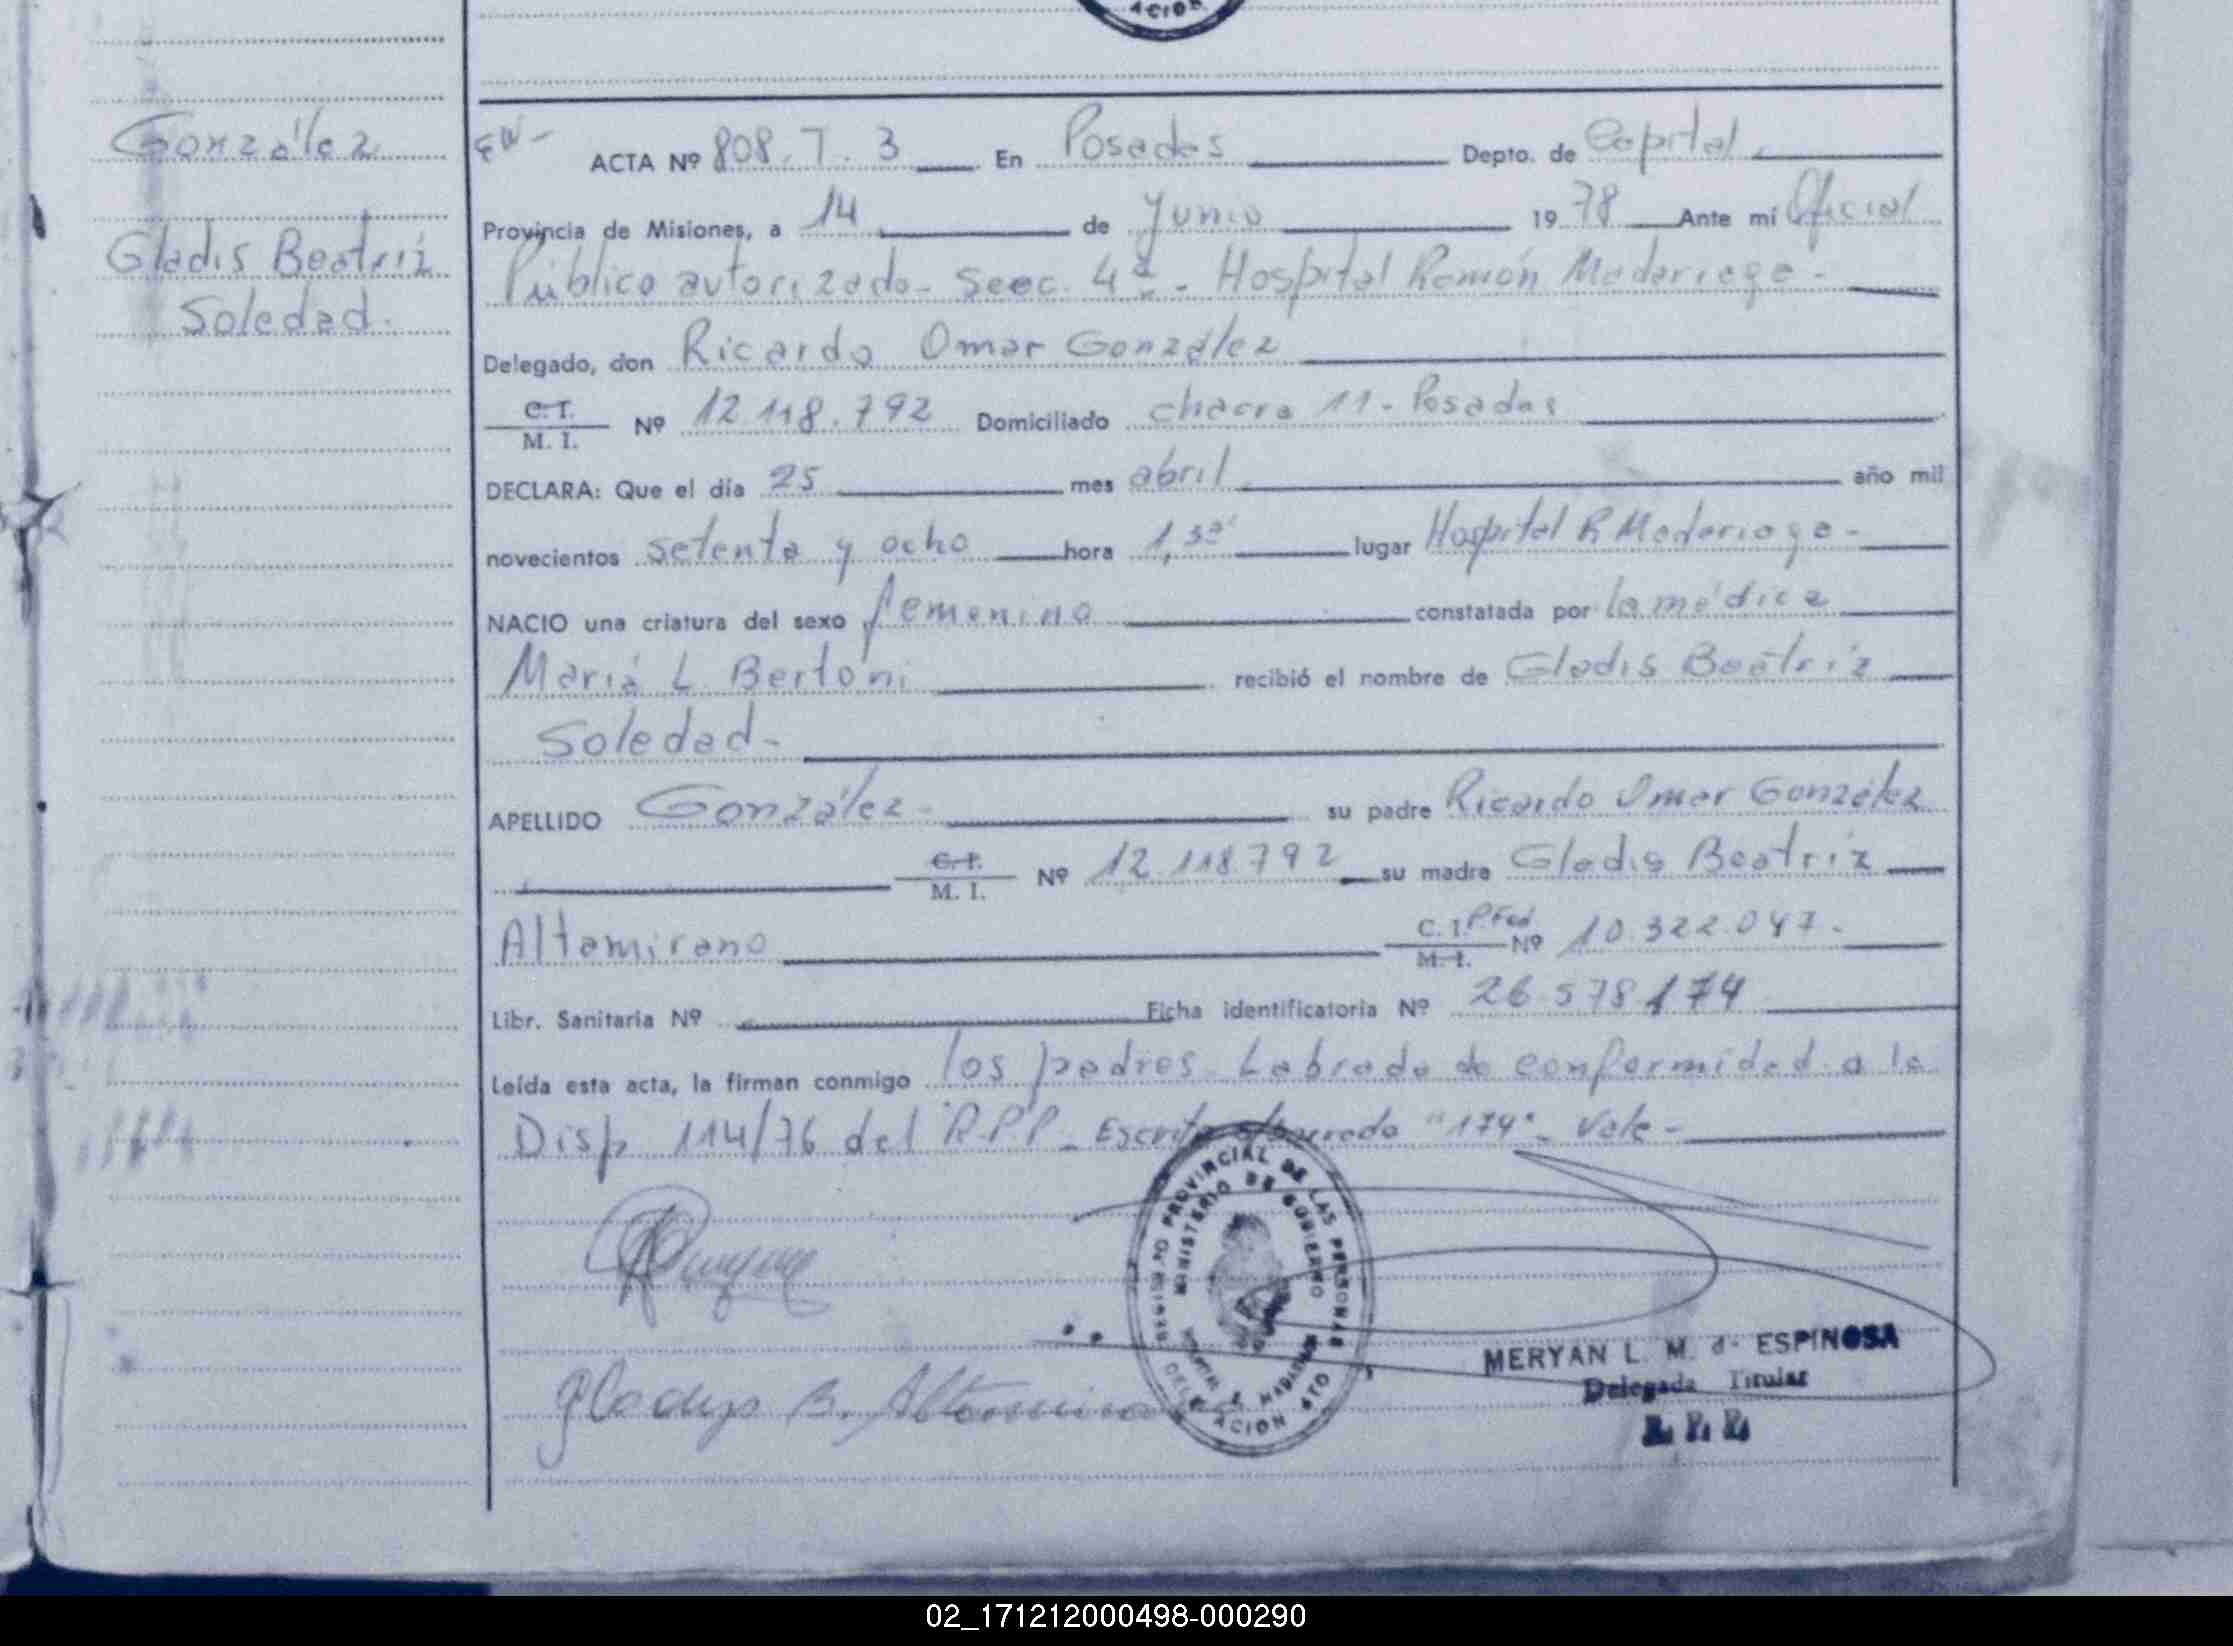 ACION
González
Gladis Beatríz
Soledad.
ACTA Nº 808. T. 3 En Posadas Depto. de Capital.
Provincia de Misiones, a 14 de Junio 1978 Ante mí Oficial
Público autorizado - Secc. 4ª - Hospital Ramón Madariaga -
Delegado, don Ricardo Omar González
C. I. M. I. Nº 12.118.792 Domiciliado chacra 11 - Posadas
DECLARA: Que el día 25 mes abril año mil
novecientos setenta y ocho hora 1,30 lugar Hospital R Madariaga -
NACIO una criatura del sexo femenino constatada por la médica
María L Bertoni recibió el nombre de Gladis Beatríz
Soledad -
APELLIDO González - su padre Ricardo Omar González
C. I. M. I. Nº 12.118.792 su madre Gladis Beatríz
Altamirano C. I. P. Fed. M. I. Nº 10.322.047.
Libr. Sanitaria Nº Ficha identificatoria Nº 26.578.174
Leída esta acta, la firman conmigo los padres. Labrada de conformidad a la
Disp 114/76 del R.P.P - Escrito s/borrado "174" - Vale -
REGISTRO PROVINCIAL DE LAS PERSONAS
MINISTERIO DE GOBIERNO
HOSPITAL R. MADARIAGA
DELEGACION
Gladys B. Altamirano
MERYAN L. M. d. ESPINOSA
Delegada Titular
R. P. P.
02_171212000498-000290